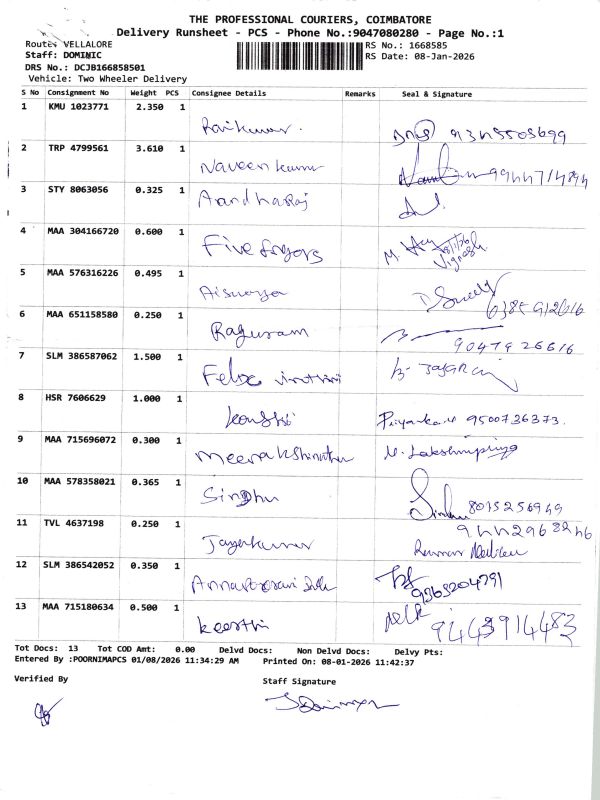 THE PROFESSIONAL COURIERS, COIMBATORE
Delivery Runsheet - PCS - Phone No.:9047080280 - Page No.:1
Route: VELLALORE
RS No.: 1668585
Staff: DOMINIC
RS Date: 08-Jan-2026
DRS No.: DCJB166858501
Vehicle: Two Wheeler Delivery
S No Consignment No Weight PCS Consignee Details Remarks Seal & Signature
1 KMU 1023771 2.350 1
Ravikumar.
2 TRP 4799561 3.610 1
Naveen kumar
3 STY 8063056 0.325 1
4 MAA 304166720 0.600 1
Five fingers
5 MAA 576316226 0.495 1
Aiswarya
6 MAA 651158580 0.250 1
Raguram
9047926616
7 SLM 386587062 1.500 1
Felix
8 HSR 7606629 1.000 1
Priyanka 9500736373.
9 MAA 715696072 0.300 1
Meenakshinathan M. Lakshmipriya
10 MAA 578358021 0.365 1
Sindhu
8015256949
11 TVL 4637198 0.250 1
Jayakumar
12 SLM 386542052 0.350 1
9363204791
13 MAA 715180634 0.500 1
Keerthi
9443914483
Tot Docs: 13 Tot COD Amt: 0.00 Delvd Docs: Non Delvd Docs: Delvy Pts:
Entered By :POORNIMAPCS 01/08/2026 11:34:29 AM Printed On: 08-01-2026 11:42:37
Verified By Staff Signature